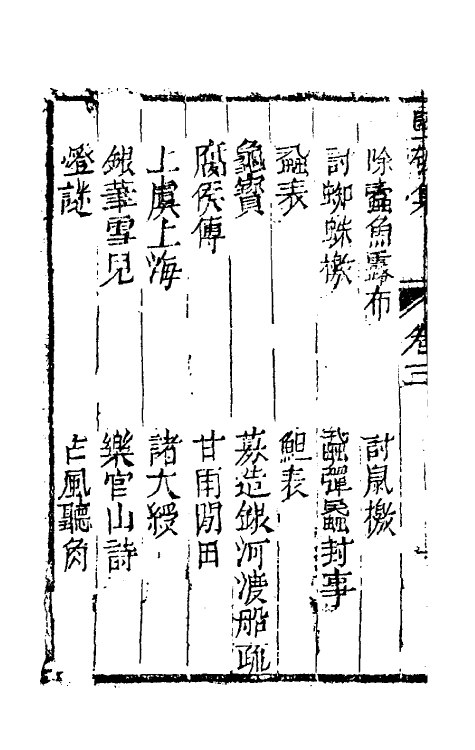 集
卷三
除蠹魚露布　討鼠檄
討蜘蛛檄　彈蝨封事
蝨表　䱇表
龜寶　募造銀河渡船疏
腐侯傳　甘雨閒田
上虞上海　諸大綬
銀筆雪兒　樂官山詩
燈謎　占風聽角